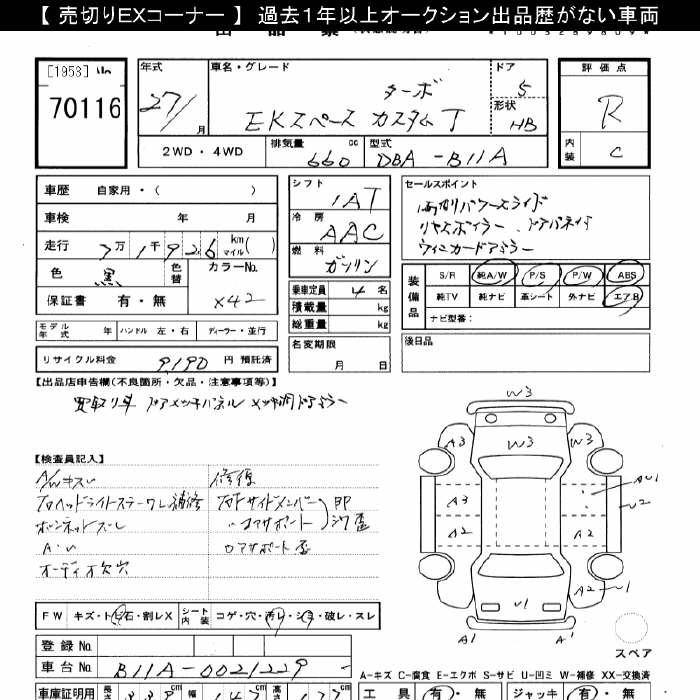 【 売切りEXコーナー 】 過去1年以上オークション出品歴がない車両
[1953]
70116
年式
27/ 月
車名・グレード
ターボ
EKスペース カスタム T
ドア
5
形状
HB
評価点
R
内装
C
2WD・4WD
排気量
660 cc
型式
DBA-B11A
車歴 自家用・( )
車検 年 月
走行 7万1千926 km マイル( )
色 黒 色替
カラーNo.
X42
保証書 有・無
モデル年式 年 ハンドル 左・右 ディーラー・並行
リサイクル料金 9,190 円 預託済
シフト
IAT
冷房
AAC
燃料
ガソリン
乗車定員 4 名
積載量 kg
総重量 kg
名変期限
月 日
セールスポイント
両側パワースライド
リヤスポイラー、ドアバイザ
ウィンカードアミラー
装備品
S/R 純A/W P/S P/W ABS
純TV 純ナビ 革シート 外ナビ エアB
ナビ型番:
後日品
【出品店申告欄(不良箇所・欠品・注意事項等)】
買取り車 ドアメッキパネル メッキ調ドアミラー
【検査員記入】
A/Wキズ
ボンネットズレ
A・U
オーディオ欠 穴
修復
コアサポート
コアサポート歪
FW キズ・ト ヒ石・割レX
シート内装 コゲ・穴・汚レ・シミ・破レ・スレ
登録 No.
車台 No. B11A-0021229
車庫証明用 長さ 339 cm 幅 147 cm 高さ 177 cm
W3
W3
A3
A3
A3
A2
A2
A2
U2
U1
U1
A1
A1
スペア
A-キズ C-腐食 E-エクボ S-サビ U-凹ミ W-補修 XX-交換済
工具 有・無 ジャッキ 有・無